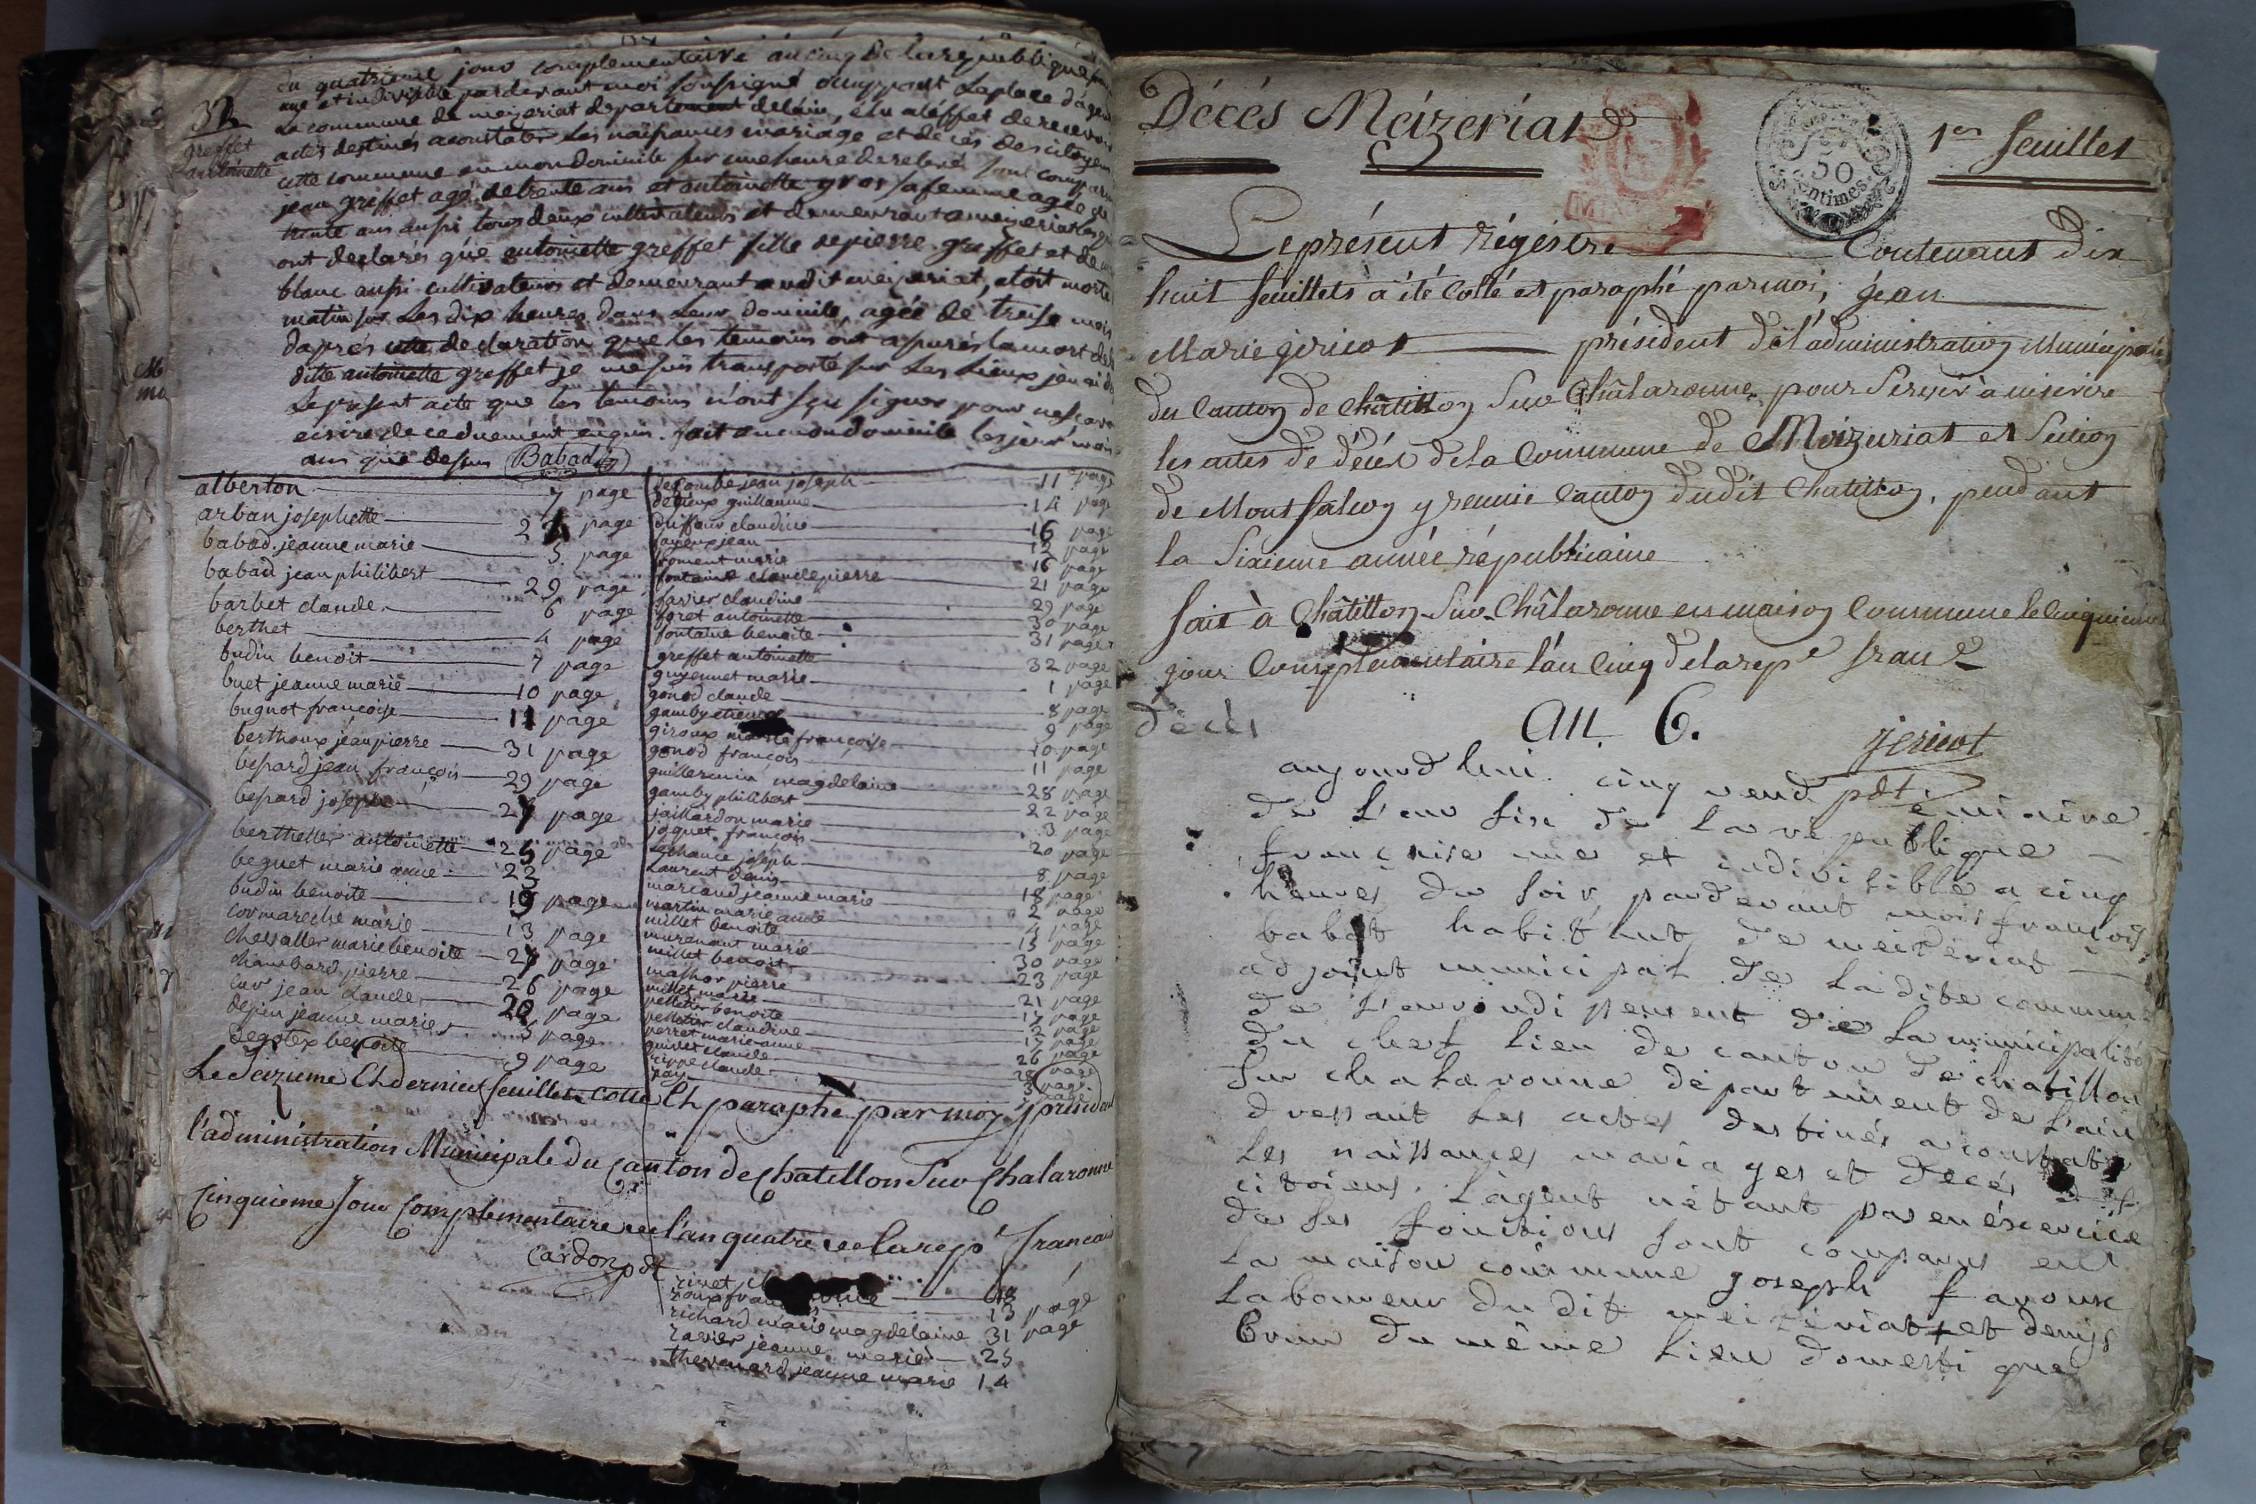 32
greffet
antoinette
du quatrieme jour complementaire an cinq de la republique
une et indivisible pardevant moi soussigné occuppant la place dagent
la commune de mezeriat departement de lain, élu aléffet de recevoir
actes destinés aconstater les naissances mariage et décès des citoyens
cette commune en mon domicile sur une heure de relevé sont comparu
jean greffet agé de trente ans et antoinette gros sa femme agée de
trente ans aussi tous deux cultivateurs et demeurant a mezeriat
ont declarés que antoinette greffet fille de pierre greffet et de
blanc aussi cultivateurs et demeurant audit mezeriat, etoit morte
matin sur les dix heures dans leur domicile, agée de treise mois
daprés cette declaration que les temoins ont assurés la mort de la
ditte antoinette greffet je me suis transporté sur les lieux jen ai
le present acte que les temoins n'ont sçu signer pour ne sçavoir
ecrire de ce duement enquis. fait en mon domicile les jour mois
ans que dessus Babad
alberton 7 page
arban josephette 24 page
babad jeanne marie 5 page
babad jean philibert 29 page
barbet claude 6 page
berthet 4 page
budin benoit 7 page
buet jeanne marie 10 page
bugnot françoise 11 page
berthoux jean pierre 31 page
besard jean françois 29 page
besard joseph 27 page
berthellier antoinette 25 page
beguet marie anne 23
budin benoite 19 page
cormareche marie 13 page
chevallier marie benoite 27 page
chambard pierre 26 page
cur jean claude 20 page
depin jeanne marie 5 page
degotex benoite 9 page
decombe jean joseph 11 page
guillaume 14 page
duffour claudine 16 page
fayoux jean 12 page
froment marie 16 page
fontaine claude pierre 21 page
favier claudine 29 page
foret antoinette 30 page
fontaine benoite 31 page
greffet antoinette 32 page
guyennet marie 1 page
gonod claude 8 page
gamby 9 page
giroux françoise 10 page
gonod françois 11 page
guillermin magdelaine 28 page
gamby philibert 22 page
jaillardon marie 3 page
joquet françois 20 page
lechance joseph 8 page
laurent denis 18 page
marcaud jeanne marie 2 page
martin marie 4 page
millet benoite 15 page
murenant marie 30 page
millet benoit 23 page
mathor pierre 21 page
millet marie 17 page
pelletier benoite 2 page
pelletier claudine 17 page
perret marie anne 26 page
guivet claude 28 page
rippe claude 3 page
Le Seizieme Et dernier feuillet cotté Et paraphé par moy président
l'administration Municipale du Canton de Chatillon Sur Chalaronne
Cinquieme Jour Complementaire de l'an quatre de la rep.e francaise
Cardon pdt
rivet
roux 13 page
richard marie magdelaine 31 page
ravier jeanne marie 25
thevenard jeanne marie 14
Décés Méizériat
1er feuillet
50
centimes
Le présent régistre Contenant dix
huit feuillets à été Cotté et paraphé par moi, jean
Marie jericot président de l'administration Municipale
du Canton de Châtillon Sur Châlaronne, pour Servir à inscrire
les actes de décès de la Commune de Meizeriat et Section
de Montfalcon y reunie Canton dudit Chatillon, pendant
la Sixieme année républicaine
fait à Châtillon Sur Châlaronne en maison Commune le Cinquieme
jour Complémentaire l'an Cinq de la rep.e fran.e
décès
an 6.
jericot
pdt.
aujourd'hui cinq vendémiaire
de l'an six de la république
francaise une et indivisible a cinq
heures du soir, pardevant moi francois
babat habitant de meizériat
adjoint municipal de la dite commune
de l'arrondissement de la municipalité
du chef lieu de canton de chatillon
sur chalaronne département de l'ain
dressant les actes destinés a constater
les naissances mariages et décès des
citoiens. l'agent n'étant pas en éxercice
de ses fonctions sont comparus en
la maison commune joseph fanoux
laboureur du dit meizériat et denys
brun du même lieu domestique